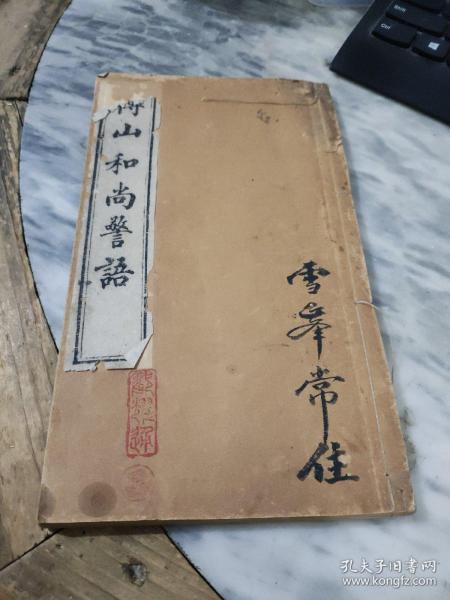 博山和尚警語
雪峯常住
孔夫子旧书网
www.kongfz.com
Shift
Ctrl